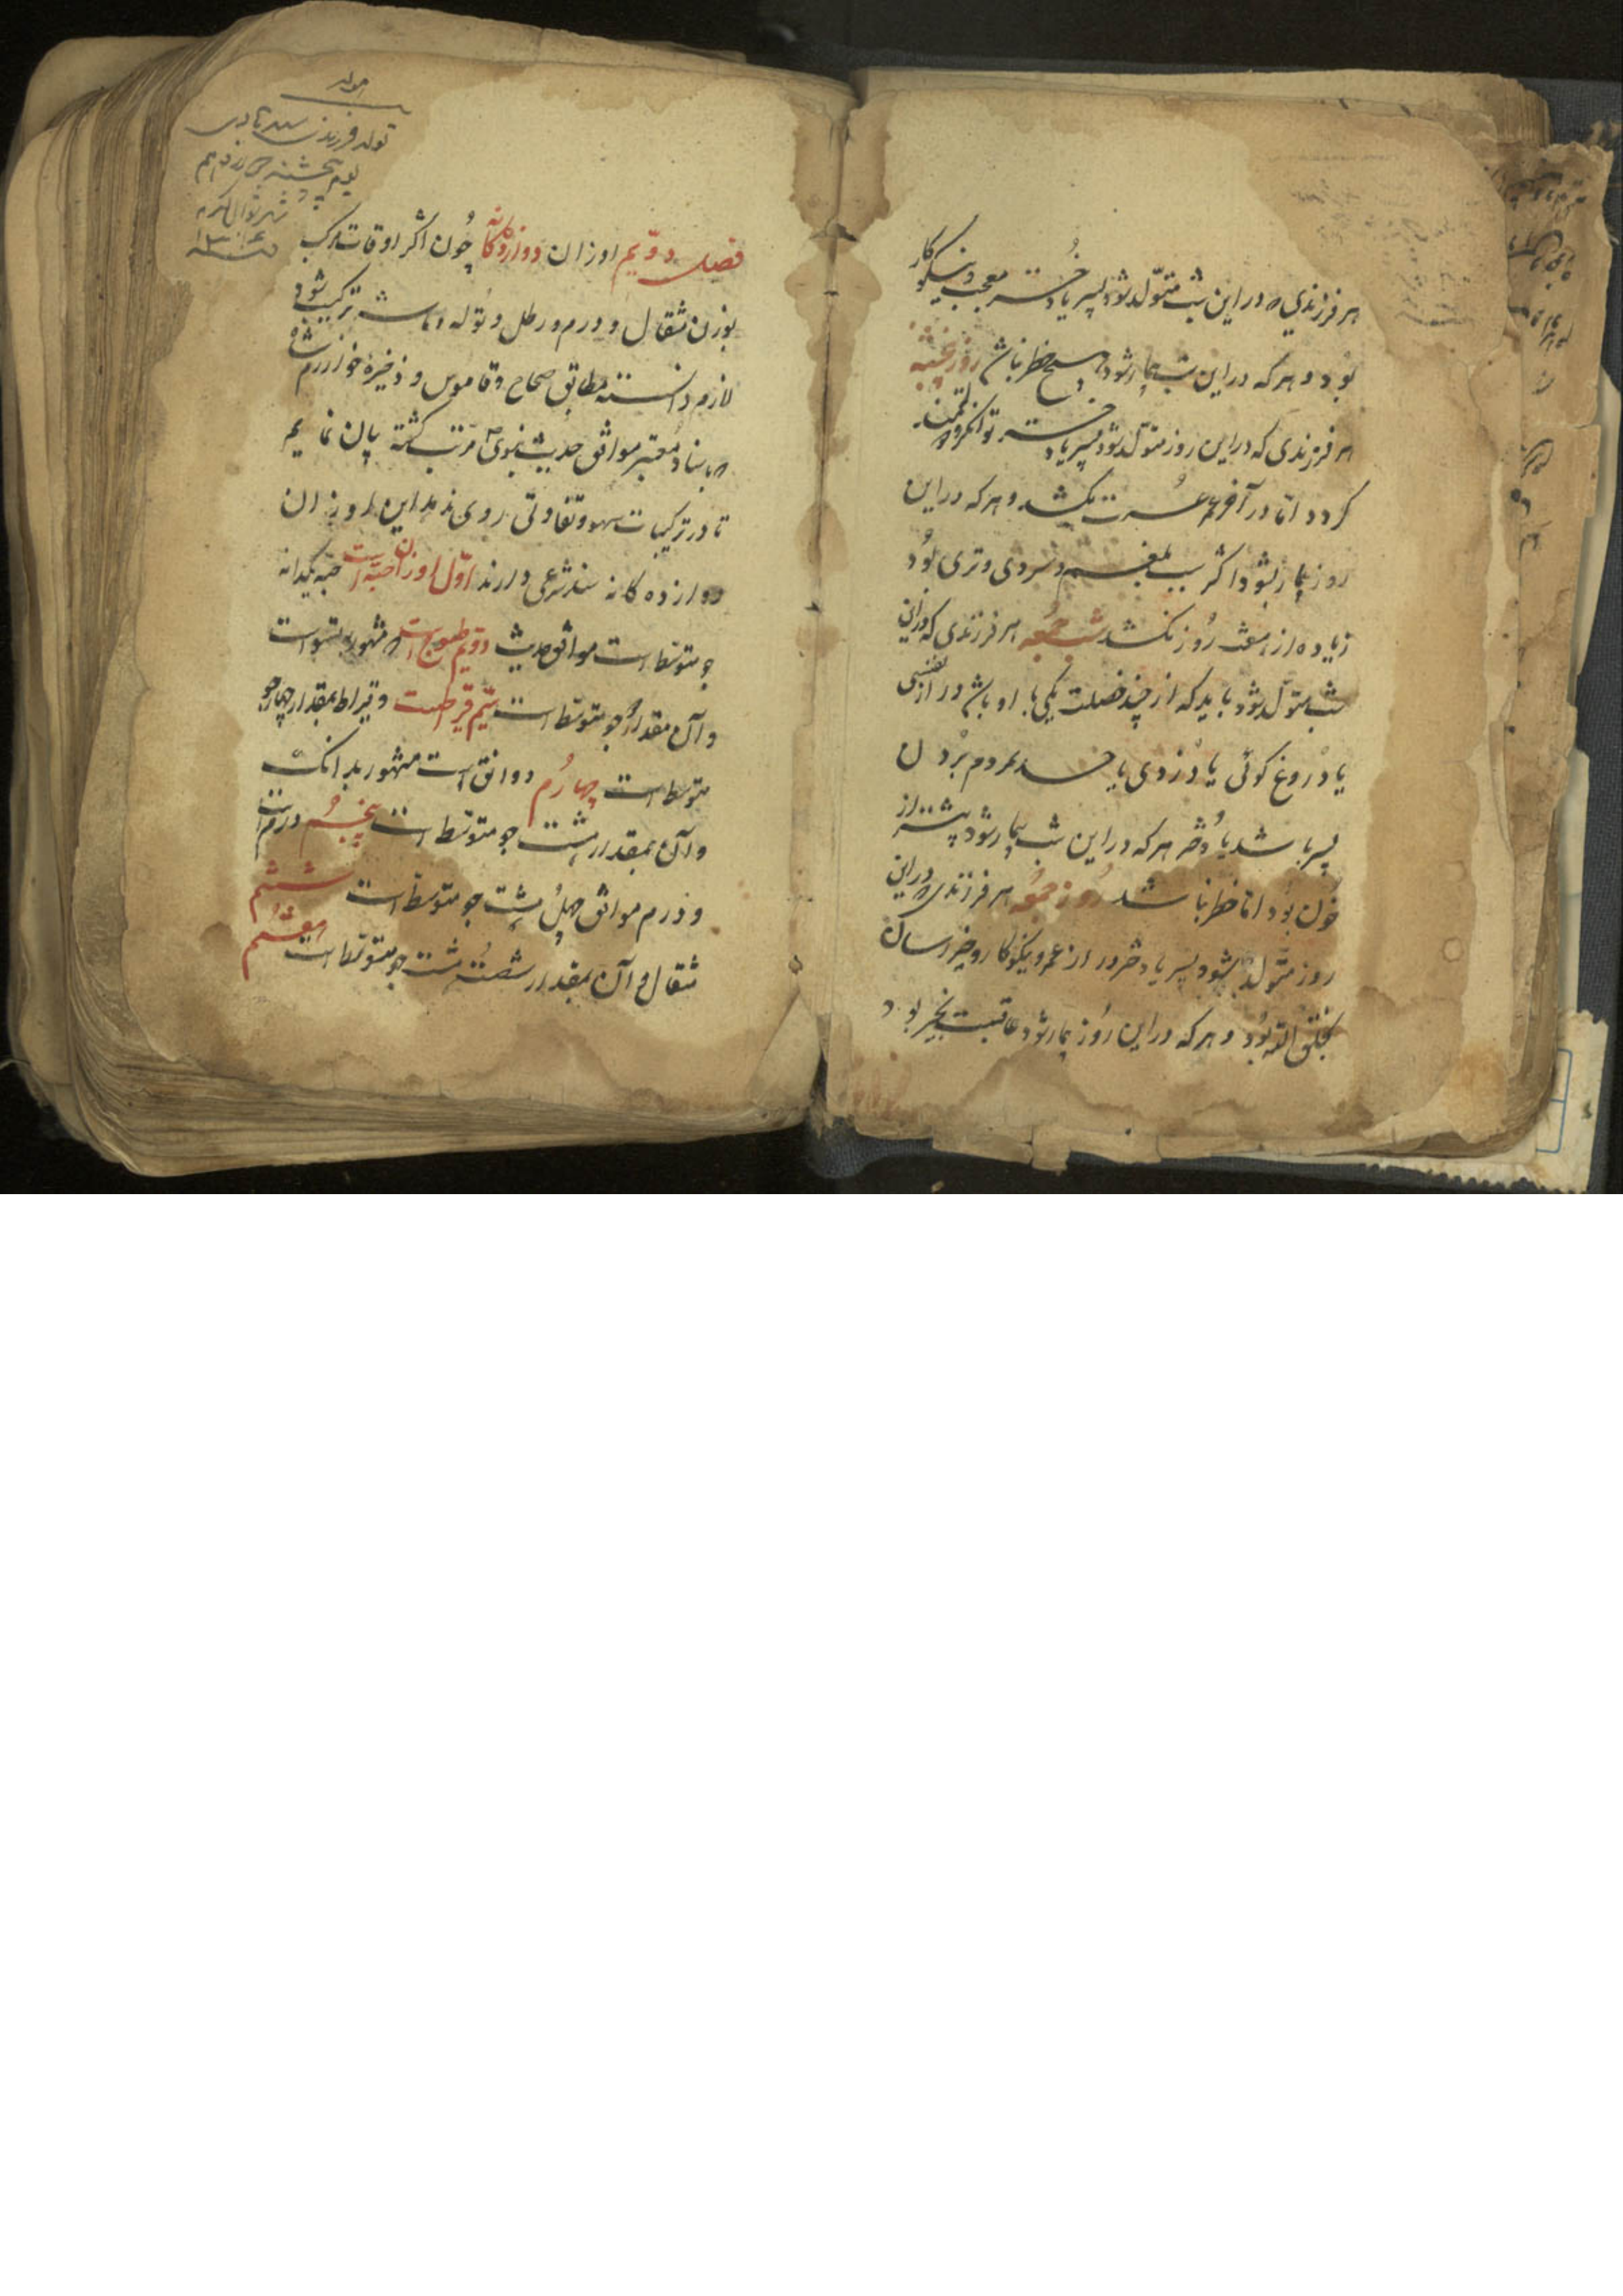 هر فرزندی که در این شب متولّد شود پسر یا دختر معجب و نیکوکار
بُود و هر که در این شب بیمار شود هیچ خطر نباشد روز پنجشنبه
هر فرزندی که در این روز متولّد شود پسر یا دختر توانگر و دولتمند
کردد امّا در آخر عمر عُسرت بکشد و هر که در این
روز بیمار بشود اکثر سبب بلغم و سردی و تری بُود
زیاده از هفت رُوز نکشد شب جمعه هر فرزندی که در این
شب متولّد شود باید که از چند خصلت یکی با او باشد دراز نفسی
یا دُروغ کوئی یا دُزدی یا حسد مردم بُردن
پسر باشد یا دُختر هر که در این شب بیمار شود بیشتر از
خُون بُود امّا خطر نباشد رُوز جمُعه هر فرزندی که در این
روز متولّد بشود پسر یا دختر دراز عمر و نیکوکار و خیر رسان
بخلق الله بُود و هر که در این رُوز بیمار شود عاقبت بخیر بود
تولد فرزند
یوم پنجشنبه چهاردهم
شهر شوال المکرم
فصل دوّیم اوزان دوازده‌کانه چُون اکثر اوقات مرکب
بوزن مثقال و درم و رطل و تُوله و ماشه ترکیب میشود
لازم دانسته مطابق صحاح و قاموس و ذخیرهٔ خوارزم شاه
که باسناد معتبر موافق حدیث نبوی مرّتب کشته بیان نمایم
تا در ترکیبات سهو و تفاوتی روی ندهد این اوزان
دوازده کانه سند شرعی دارند اوّل اوزان حبّه است حبّه یکدانه
جو متوسّط است موافق حدیث دوّیم طسوج است که مشهور بتسو است
و آن مقدار دو جو متوسّط است سیّم قیراطست و قیراط بمقدار چهار جو
متوسط است چهارُم دوانق است مشهور بدانک
و آن بمقدار هشت جو متوسّط است پنجُم درم است
و درم موافق چهلُ هشت جو متوسّط است ششم
مثقال و آن بمقدار شصتُ هشت جو متوسّط است هفتُم